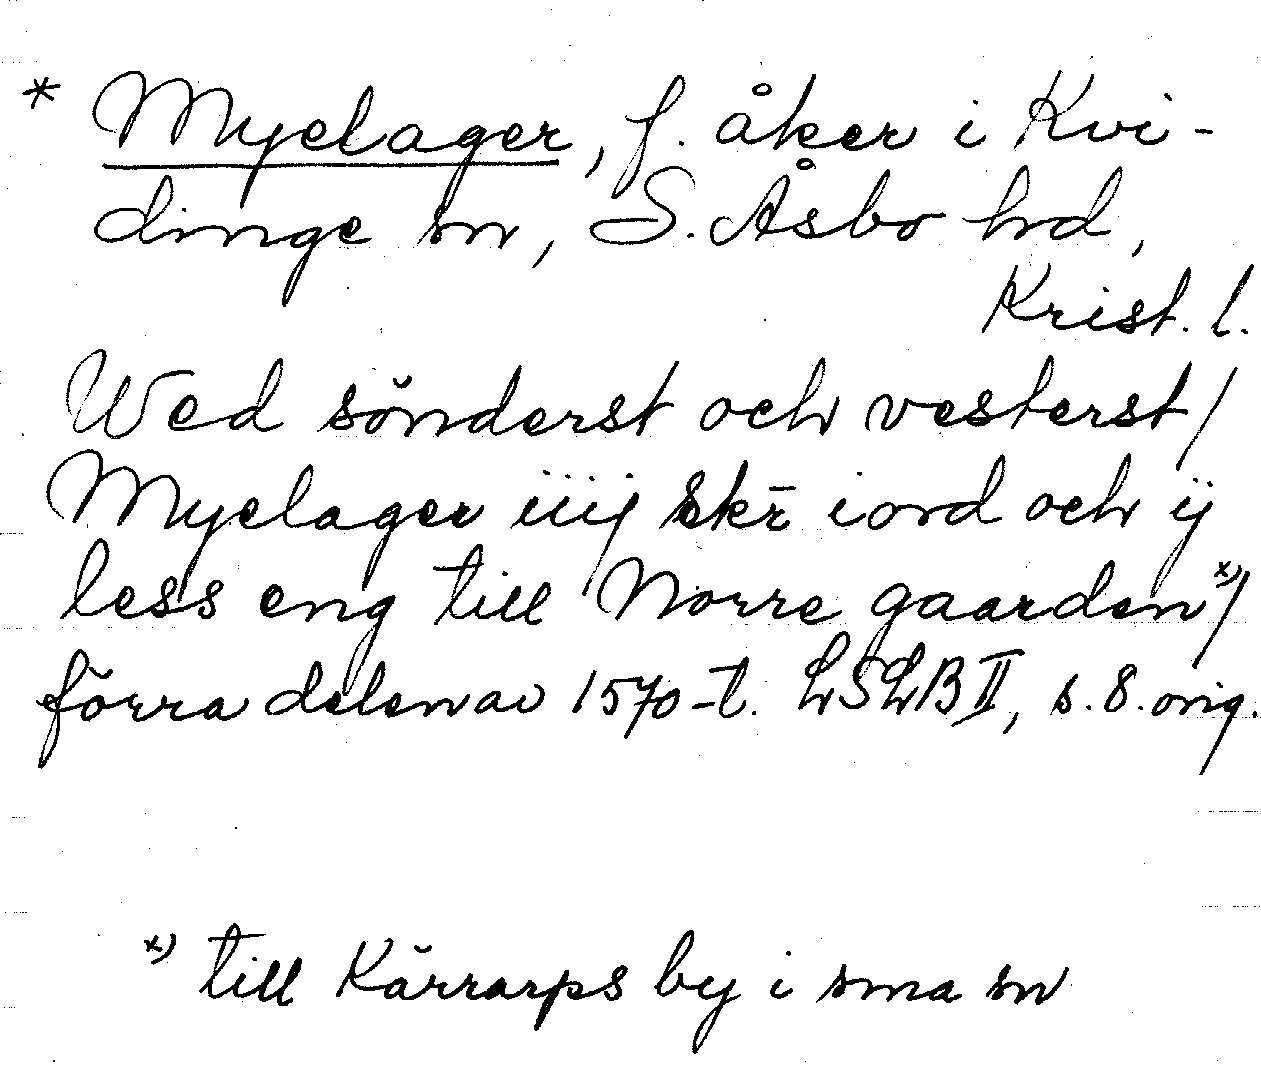 * Myelager, f. åker i Kvi-
dinge sn, S. Åsbo hd,
Krist. l.
Wed sönderst och vesterst /
Myelager iiij skr̄ iord och ij
less eng till Norre gaarden x) /
förra delen av 1570-t. LSLB II, s. 8. orig.
x) till Kärrarps by i sma sn